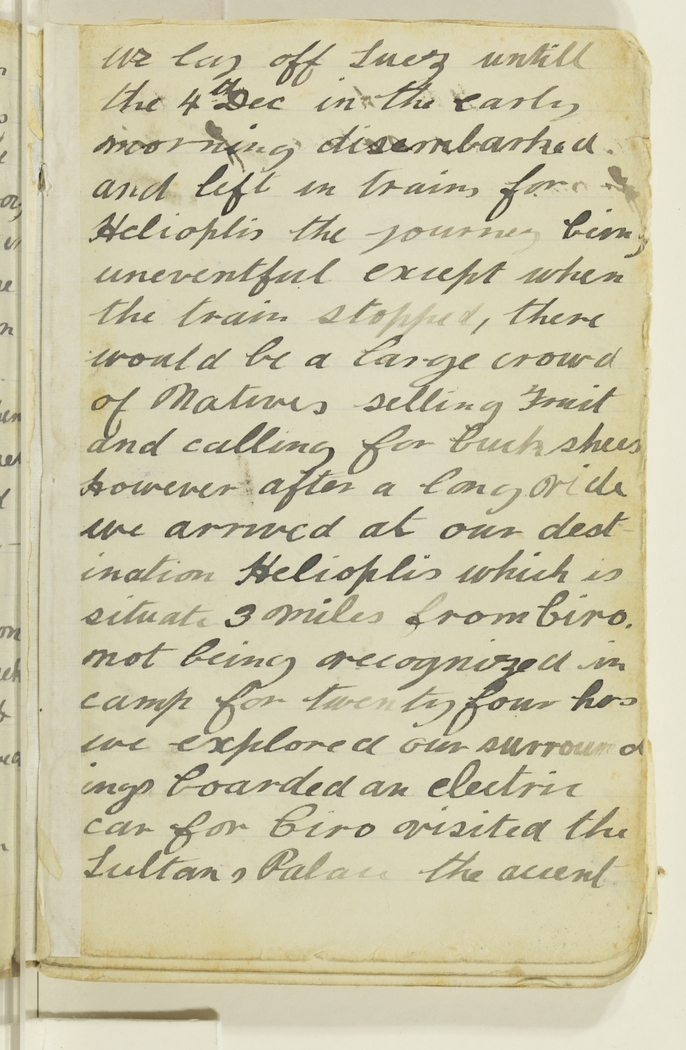 we lay off Suez untill
the 4th Dec in the early
morning disembarked.
and left in trains for
Helioplis the journey being
uneventful except when
the train stopped, there
would be a large crowd
of Natives selling Fruit
and calling for buckshees
However after a long ride
we arrived at our dest-
ination Helioplis which is
situate 3 miles from Ciro.
not being recognized in
camp for twenty four hrs
we explored our surround
ings boarded an electric
car for Ciro visited the
Sultans Palace the aucent